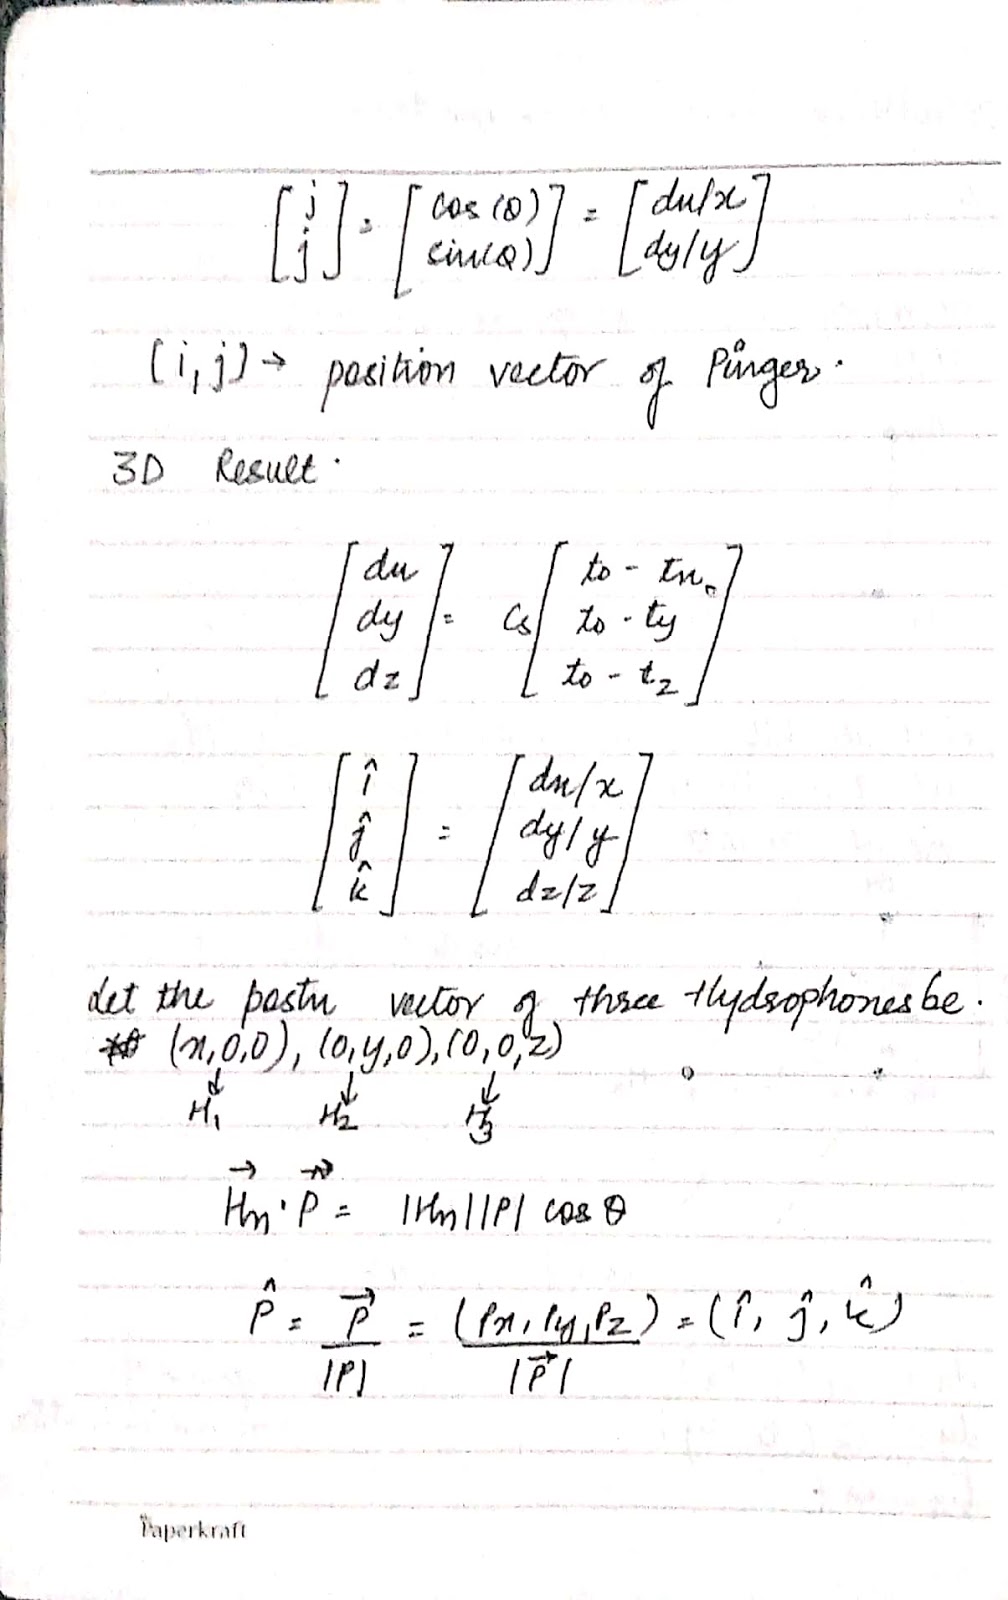 [j j] = [cos(θ) sin(θ)] = [dx/x dy/y]
(i, j) → position vector of Pinger.
3D Result.
[dx dy dz] = Cs [t0 - tx t0 - ty t0 - tz]
[î ĵ k̂] = [dx/x dy/y dz/z]
Let the postn vector of three Hydrophones be.
(x,0,0), (0,y,0), (0,0,z)
H1 H2 H3
H⃗n · P⃗ = |Hn||P| cos θ
P̂ = P⃗/|P| = (Px, Py, Pz)/|P⃗| = (î, ĵ, k̂)
Paperkraft